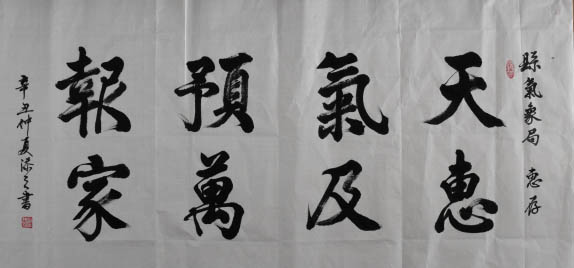 縣氣象局 惠存
天氣預報
惠及萬家
辛丑仲夏之書